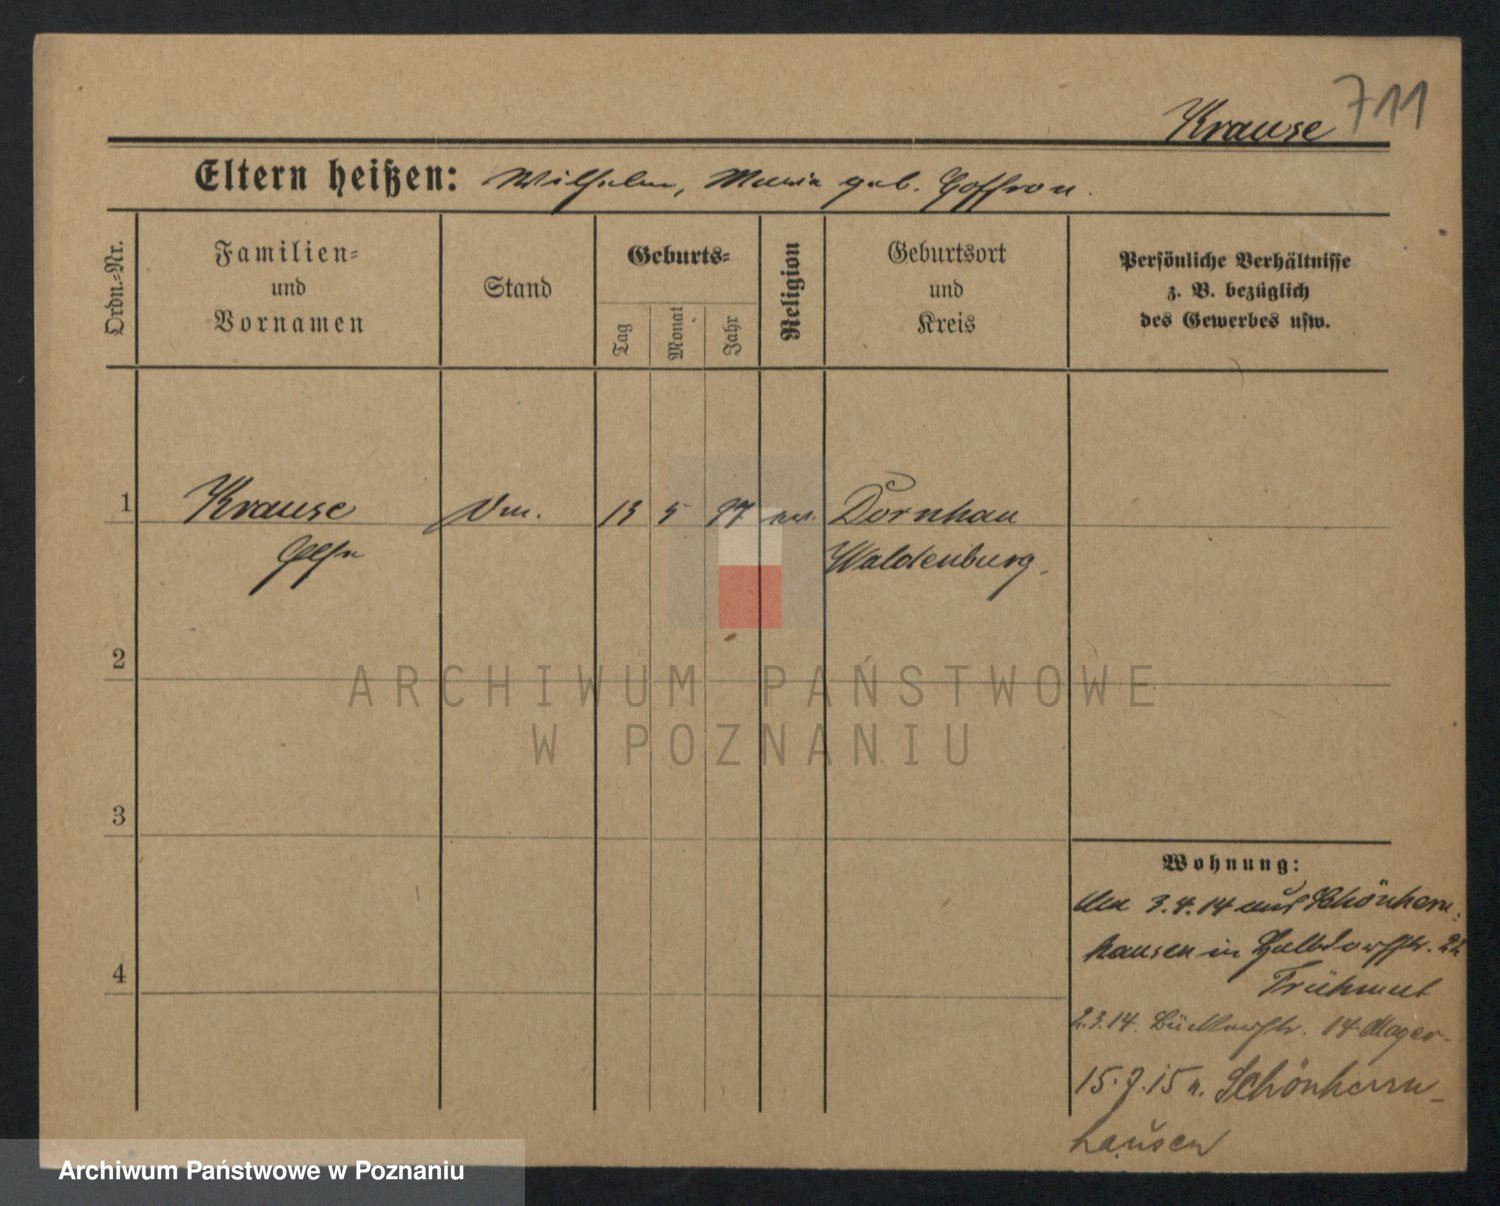 711
Krause
Eltern heißen: Wilhelm, Maria geb. Hoffron.
Ordn.-Nr.
Familien-
und
Vornamen
Stand
Geburts-
Tag
Monat
Jahr
Religion
Geburtsort
und
Kreis
Persönliche Verhältnisse
z. B. bezüglich
des Gewerbes usw.
1 Krause 13 5 97 Dornhau
Waldenburg.
2
3
4
Wohnung:
3.4.14 aus Schönherrn-
hausen in Halbdorfstr.
Frühmut
2.3.14. 14 Mager.
15. 7. 15 n. Schönherrn-
hausen
ARCHIWUM PAŃSTWOWE
W POZNANIU
Archiwum Państwowe w Poznaniu